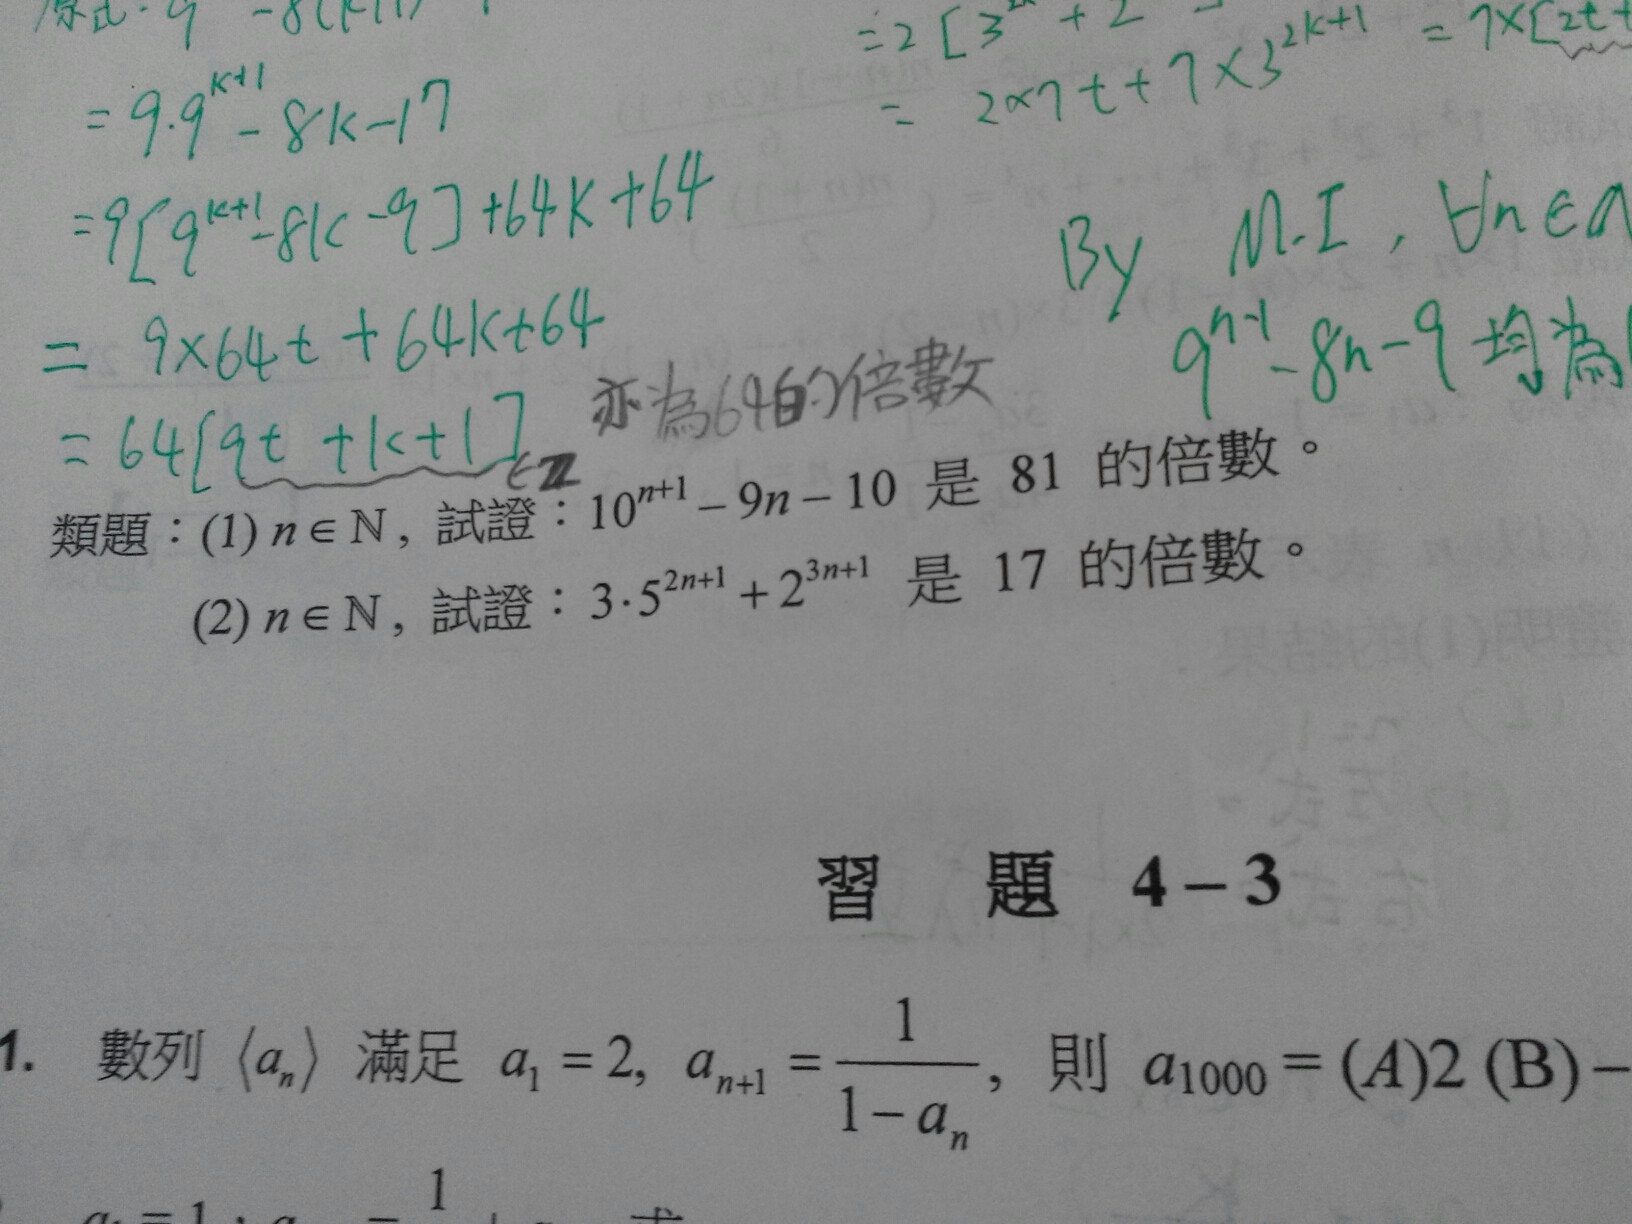 = 9·9^{k+1} - 8k - 17
= 9[9^{k+1} - 8k - 9] + 64k + 64
= 9×64t + 64k + 64
= 64[9t + k + 1] ∈ Z 亦為64的倍數
= 2[3
= 2×7t + 7×3^{2k+1} = 7×[2t+
By M.I, ∀n∈
9^{n+1} - 8n - 9 均為
類題：(1) n∈ℕ, 試證：10^{n+1} - 9n - 10 是 81 的倍數。
(2) n∈ℕ, 試證：3·5^{2n+1} + 2^{3n+1} 是 17 的倍數。
習 題 4-3
1. 數列 ⟨a_n⟩ 滿足 a_1 = 2, a_{n+1} = \frac{1}{1-a_n}, 則 a_{1000} = (A)2 (B)-